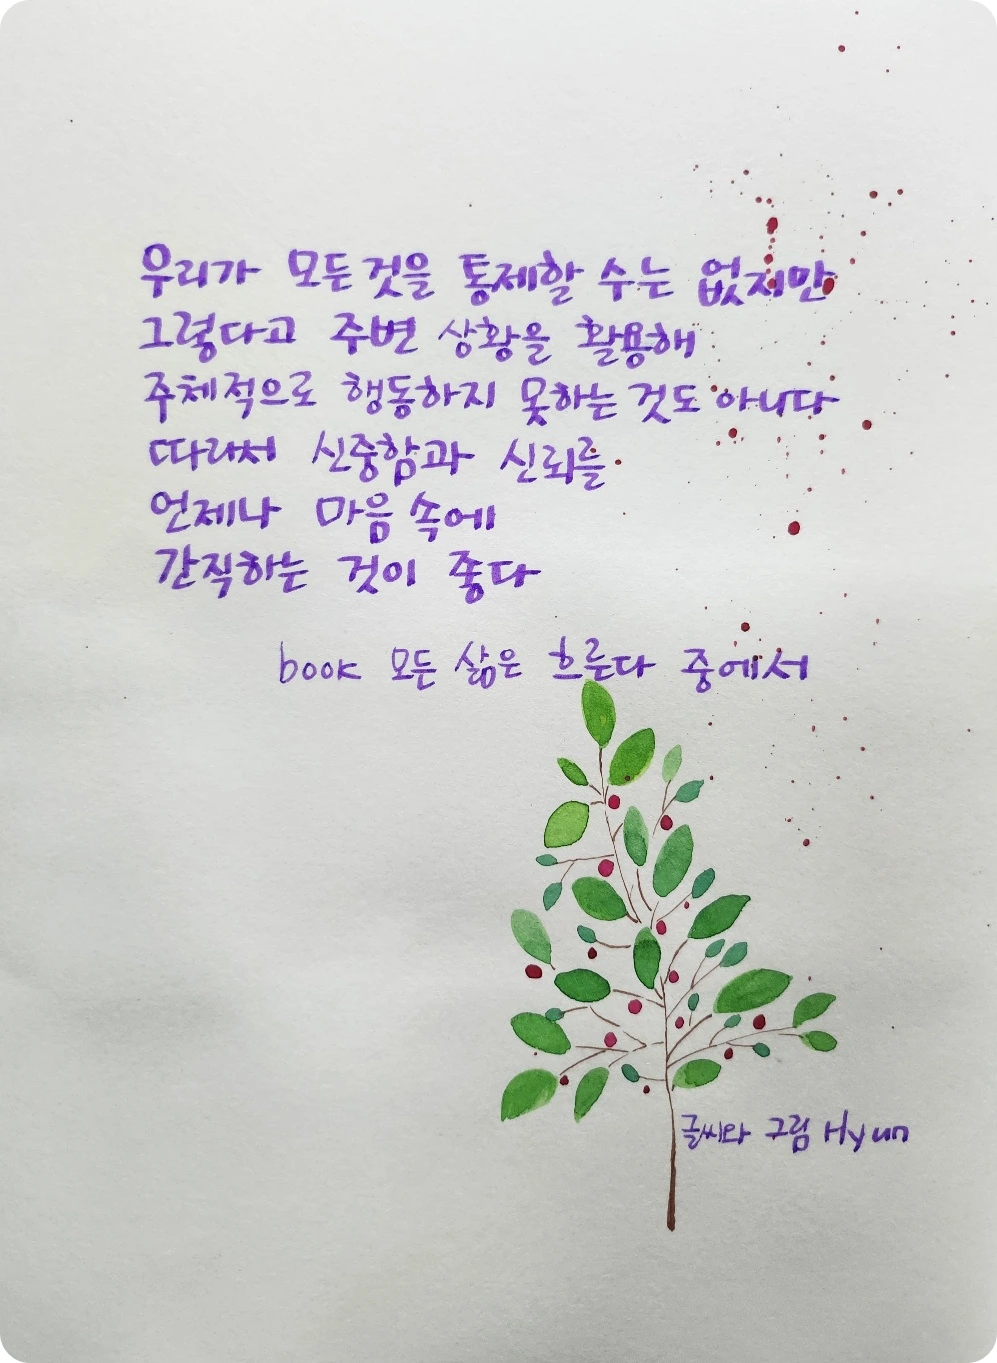 우리가 모든것을 통제할 수는 없지만
그렇다고 주변 상황을 활용해
주체적으로 행동하지 못하는 것도 아니다
따라서 신중함과 신뢰를
언제나 마음 속에
간직하는 것이 좋다
book 모든 삶은 흐른다 중에서
글씨와 그림 Hyun